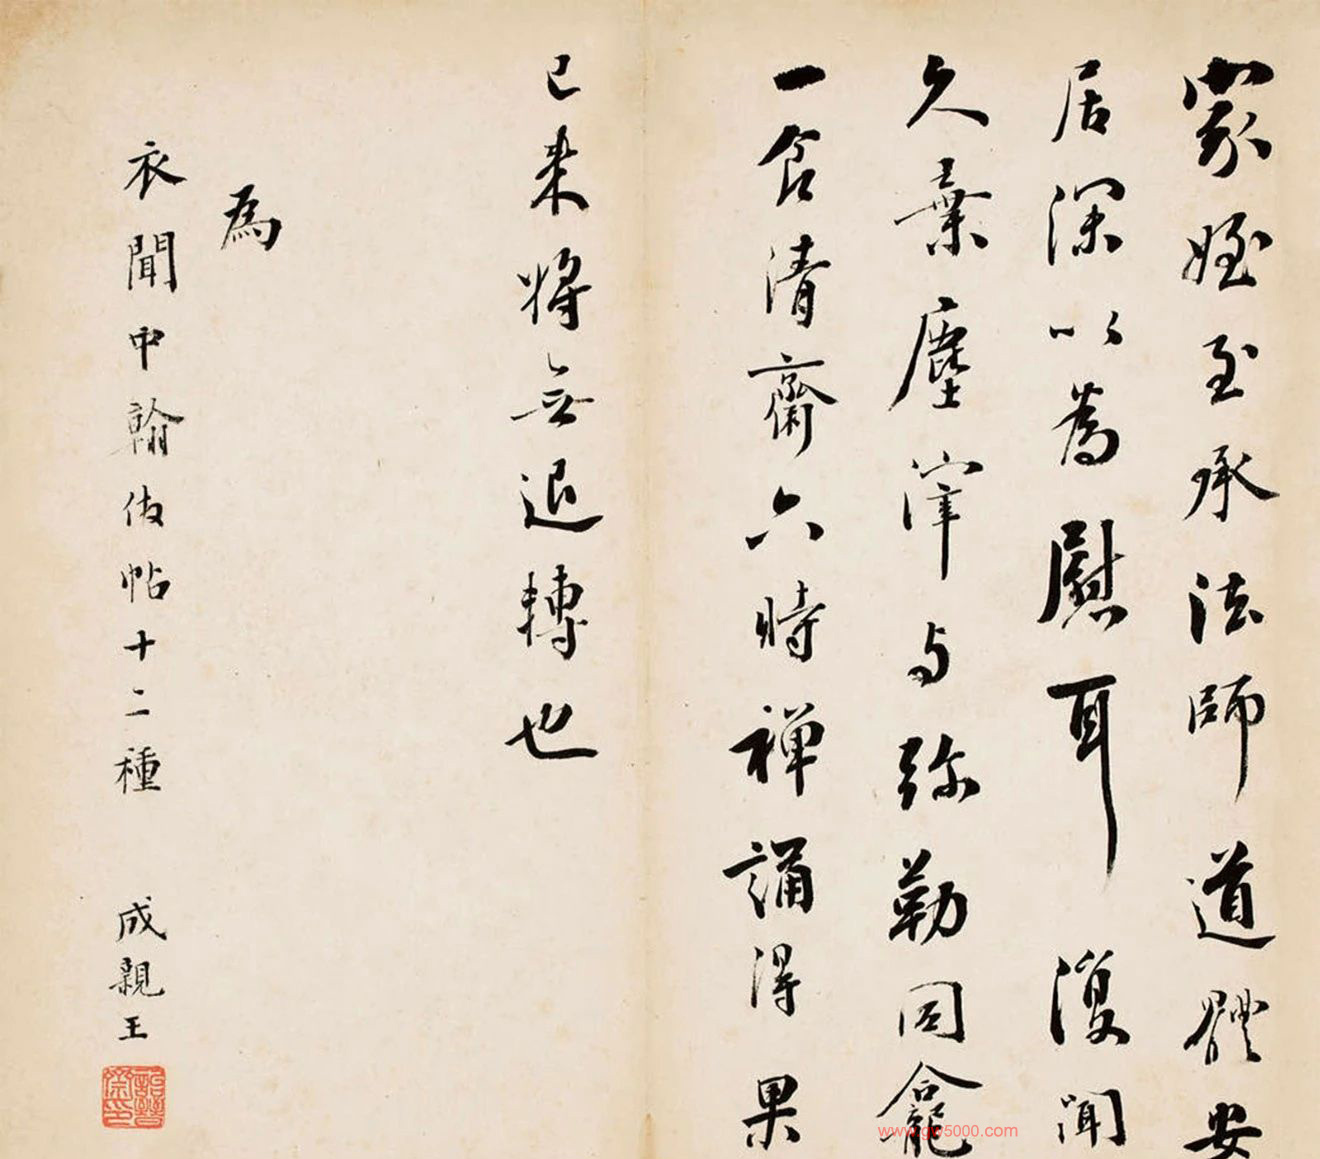 家姪至承法師道體安
居深以為慰耳復聞
久棄塵滓与弥勒同龕
一食清齋六時禅誦得果
已来将无退轉也
為
衣聞中翰仿帖十二種
成親王
www.gw5000.com